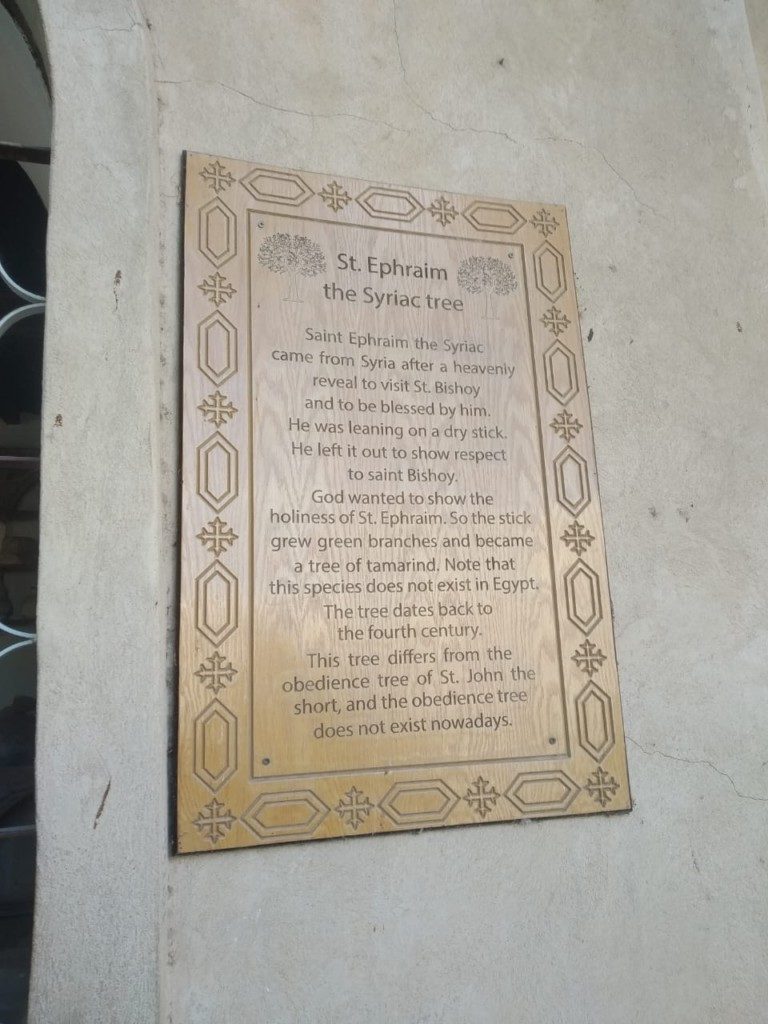 St. Ephraim
the Syriac tree
Saint Ephraim the Syriac
came from Syria after a heavenly
reveal to visit St. Bishoy
and to be blessed by him.
He was leaning on a dry stick.
He left it out to show respect
to saint Bishoy.
God wanted to show the
holiness of St. Ephraim. So the stick
grew green branches and became
a tree of tamarind. Note that
this species does not exist in Egypt.
The tree dates back to
the fourth century.
This tree differs from the
obedience tree of St. John the
short, and the obedience tree
does not exist nowadays.